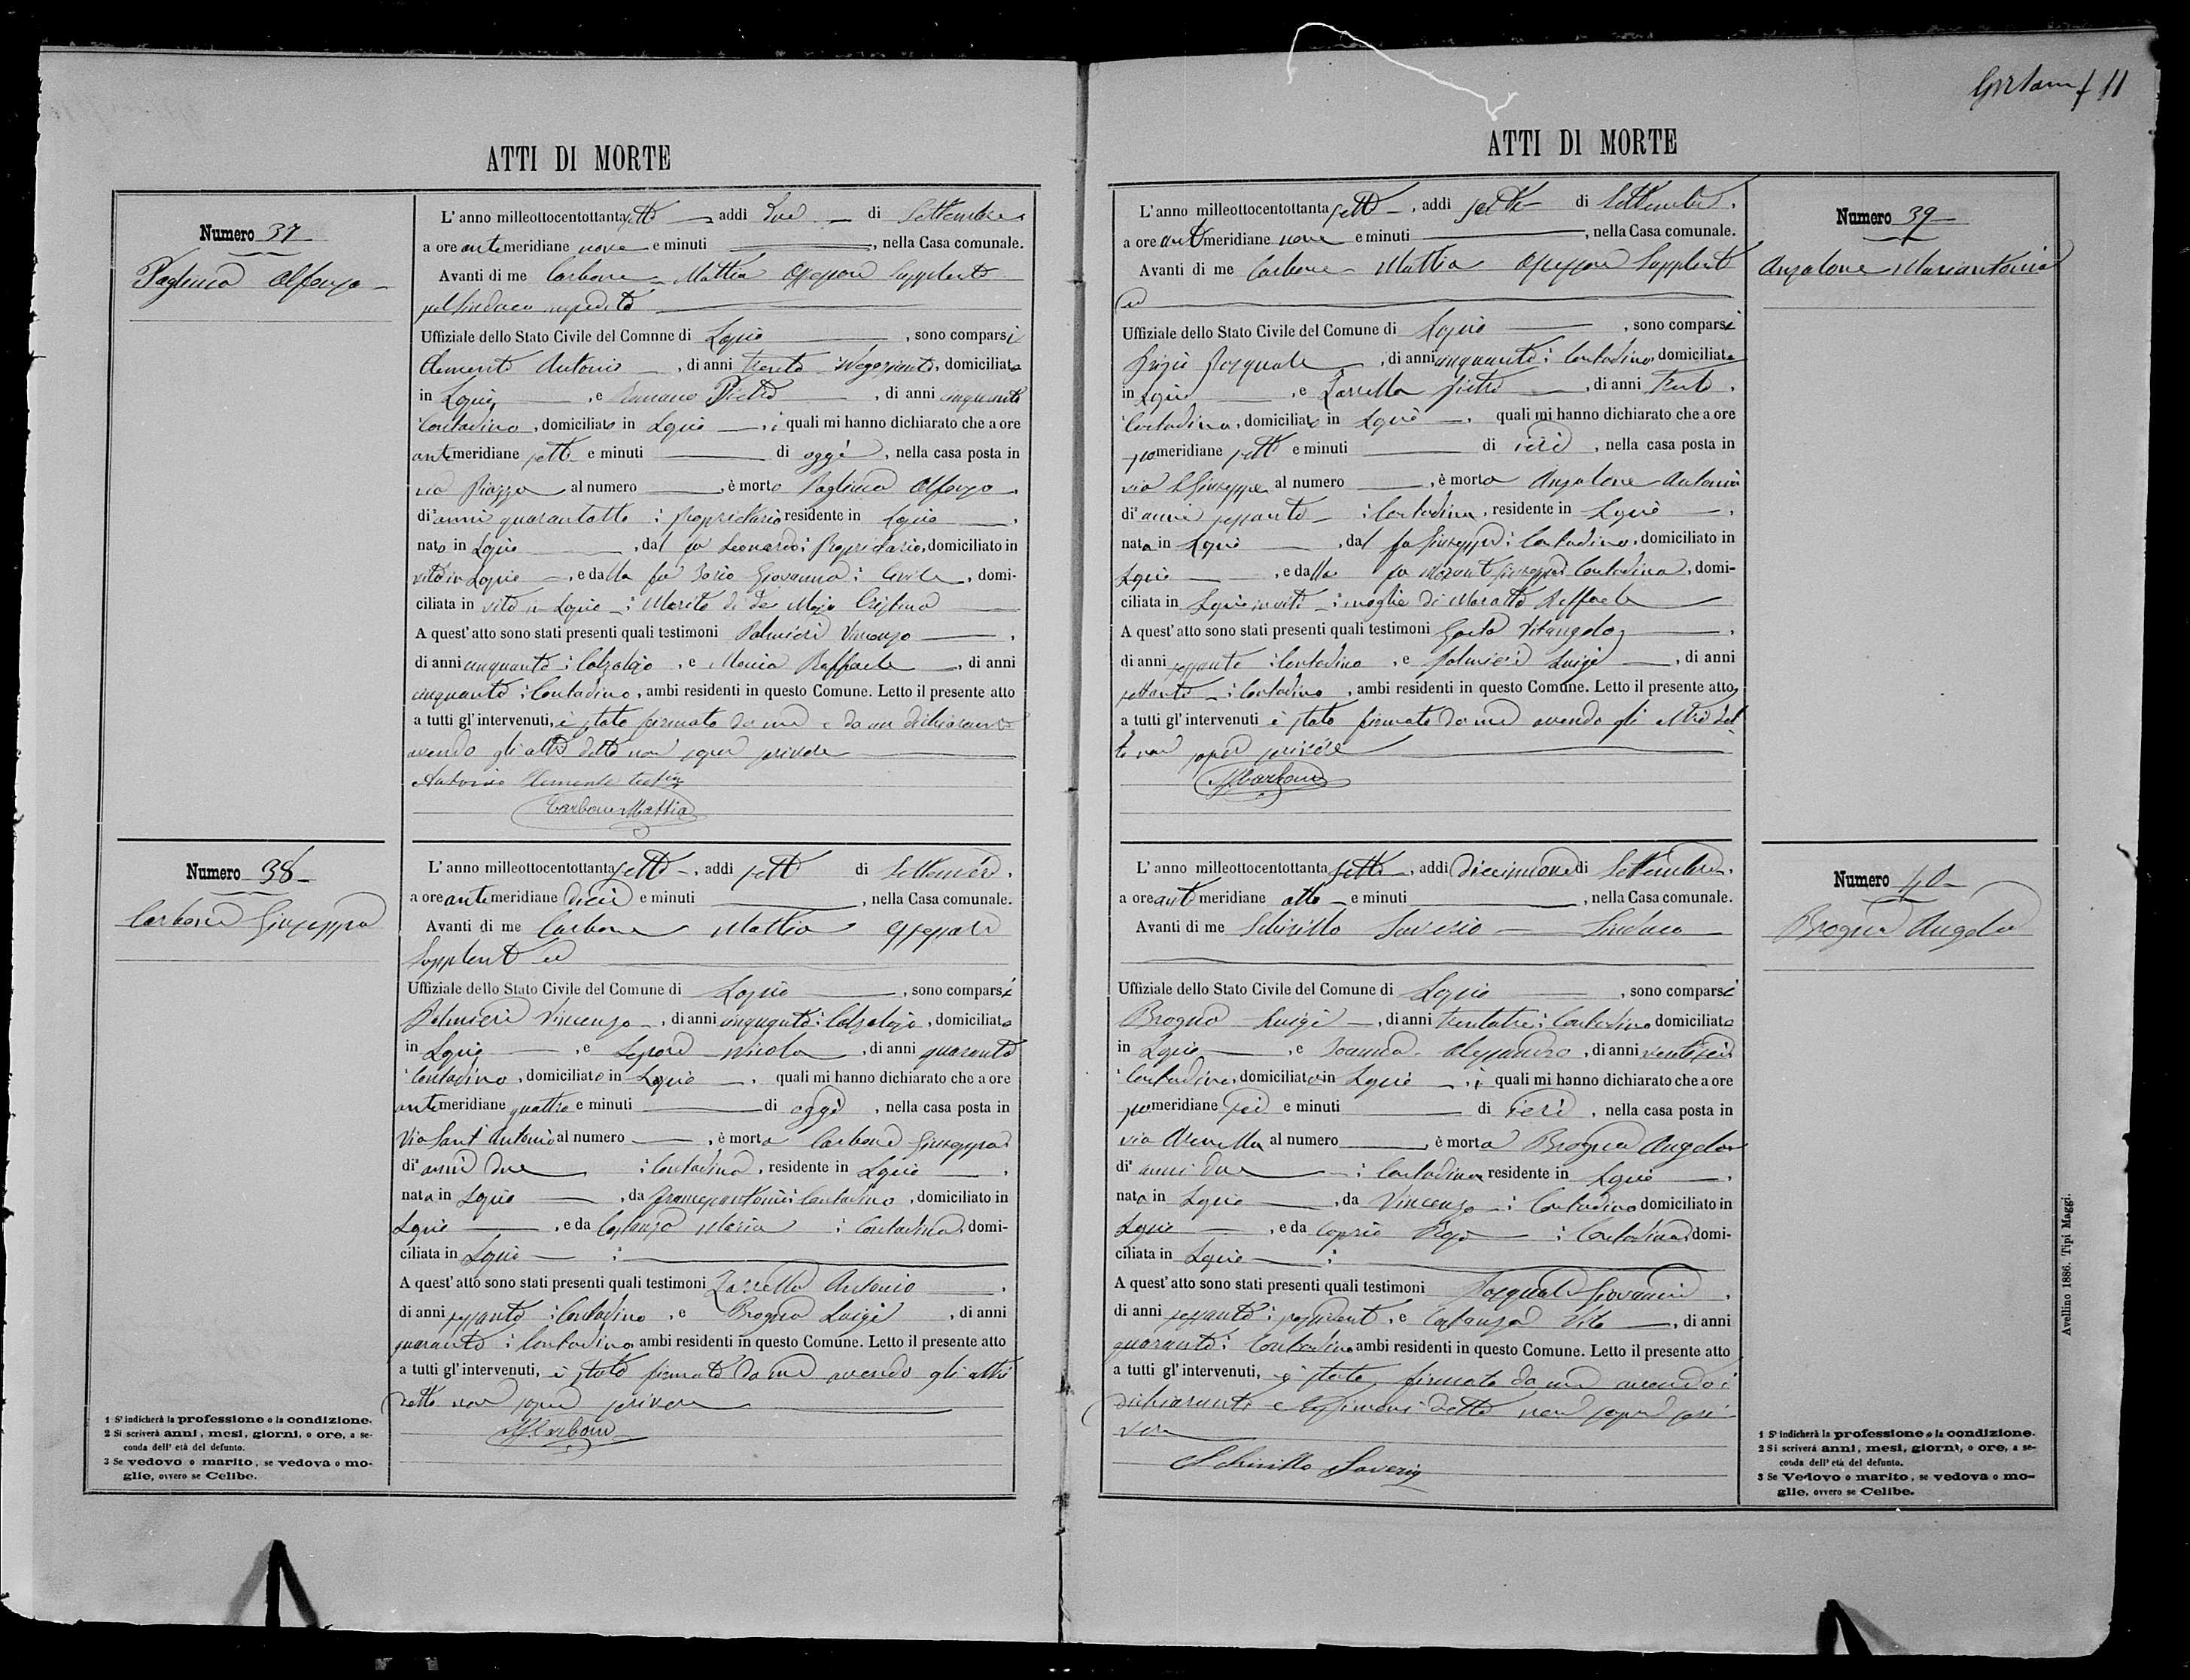 11
ATTI DI MORTE
Numero 37
Pagliuca Alfonso
L'anno milleottocentottantasette, addi due di Settembre
a ore antemeridiane nove e minuti , nella Casa comunale.
Avanti di me Carbone Mattia Assessore Supplente
pel Sindaco impedito
Uffiziale dello Stato Civile del Comnne di Lapio , sono comparsi
Clemente Antonio , di anni trenta : Negoziante, domiciliato
in Lapio , e Romano Pietro , di anni cinquanta
: Contadino, domiciliato in Lapio , i quali mi hanno dichiarato che a ore
antemeridiane sette e minuti di oggi , nella casa posta in
via Piazza al numero , è morto Pagliuca Alfonso
di anni quarantotto : proprietario residente in Lapio
nato in Lapio , dal fu Leonardo: Proprietario, domiciliato in
vita in Lapio , e dalla fu Giovanna: Civile, domi-
ciliata in vita in Lapio : Marito di
A quest'atto sono stati presenti quali testimoni Palmieri Vincenzo
di anni cinquanta : Calzolajo , e Raffaele , di anni
cinquanta : Contadino, ambi residenti in questo Comune. Letto il presente atto
a tutti gl'intervenuti, è stato firmato da me e da un dichiarante
avendo gli altri detto non saper scrivere
Antonio Clemente
Carbone Mattia
Numero 38
Carbone Giuseppa
L'anno milleottocentottantasette, addi sette di Settembre.
a ore antemeridiane dieci e minuti , nella Casa comunale.
Avanti di me Carbone Mattia Assessore
Supplente
Uffiziale dello Stato Civile del Comune di Lapio , sono comparsi
Palmieri Vincenzo , di anni cinquanta: Calzolajo, domiciliato
in Lapio , e Nicola , di anni quaranta
: Contadino, domiciliato in Lapio , quali mi hanno dichiarato che a ore
antemeridiane quattro e minuti di oggi , nella casa posta in
via Sant'Antonio al numero , è morta Carbone Giuseppa
di anni due : Contadina, residente in Lapio
nata in Lapio , da Francescantonio: Contadino , domiciliato in
Lapio , e da Costanza Maria : Contadina, domi-
ciliata in Lapio :
A quest'atto sono stati presenti quali testimoni Zarrella Antonio
di anni sessanta : Contadino , e Brogna Luigi , di anni
quaranta : Contadino, ambi residenti in questo Comune. Letto il presente atto
a tutti gl'intervenuti, è stato firmato da me avendo gli altri
detto non saper scrivere
MCarbone
1 S'indicherà la professione o la condizione.
2 Si scriverà anni, mesi, giorni, o ore, a se-
conda dell'età del defunto.
3 Se vedovo o marito, se vedova o mo-
glie, ovvero se Celibe.
ATTI DI MORTE
Numero 39
Anzalone Mariantonia
L'anno milleottocentottantasette, addi sette di Settembre.
a ore antimeridiane nove e minuti , nella Casa comunale.
Avanti di me Carbone Mattia Assessore Supplente
Uffiziale dello Stato Civile del Comune di Lapio , sono comparsi
Pasquale , di anni cinquanta : Contadino, domiciliato
in Lapio , e Zarrella Pietro , di anni trenta
: Contadino, domiciliato in Lapio , quali mi hanno dichiarato che a ore
pomeridiane sette e minuti di ieri , nella casa posta in
via S. Giuseppe al numero , è morta Anzalone Antonia
di anni sessanta : Contadina, residente in Lapio
nata in Lapio , dal fu Giuseppe: Contadino, domiciliato in
Lapio , e dalla fu Giuseppa Contadina, domi-
ciliata in Lapio in vita : moglie di Raffaele
A quest'atto sono stati presenti quali testimoni Vitangelo
di anni sessanta : Contadino , e Palmieri Luigi , di anni
settanta : Contadino , ambi residenti in questo Comune. Letto il presente atto
a tutti gl'intervenuti è stato firmato da me avendo gli altri det
to non saper scrivere
MCarbone
Numero 40
Brogna Angela
L'anno milleottocentottantasette, addi diecinnove di Settembre.
a ore antimeridiane otto e minuti , nella Casa comunale.
Avanti di me Schirillo Saverio Sindaco
Uffiziale dello Stato Civile del Comune di Lapio , sono comparsi
Brogna Luigi , di anni trentatre: Contadino domiciliato
in Lapio , e Alessandro , di anni ventisei
: Contadino, domiciliato in Lapio , i quali mi hanno dichiarato che a ore
pomeridiane sei e minuti di ieri , nella casa posta in
via al numero , è morta Brogna Angela
di anni due : Contadina residente in Lapio
nata in Lapio , da Vincenzo : Contadino domiciliato in
Lapio , e da Caprio Rosa : Contadina, domi-
ciliata in Lapio :
A quest'atto sono stati presenti quali testimoni Pasquale Giovanni
di anni sessanta: possidente, e Costanza Vito , di anni
quaranta: Contadino ambi residenti in questo Comune. Letto il presente atto
a tutti gl'intervenuti, è stato firmato da me avendo i
dichiaranti e testimoni detto non saper scri-
vere
Schirillo Saverio
1 S'indicherà la professione o la condizione.
2 Si scriverà anni, mesi, giorni, o ore, a se-
conda dell'età del defunto.
3 Se Vedovo o marito, se vedova o mo-
glie, ovvero se Celibe.
Avellino 1886. Tipi Maggi.